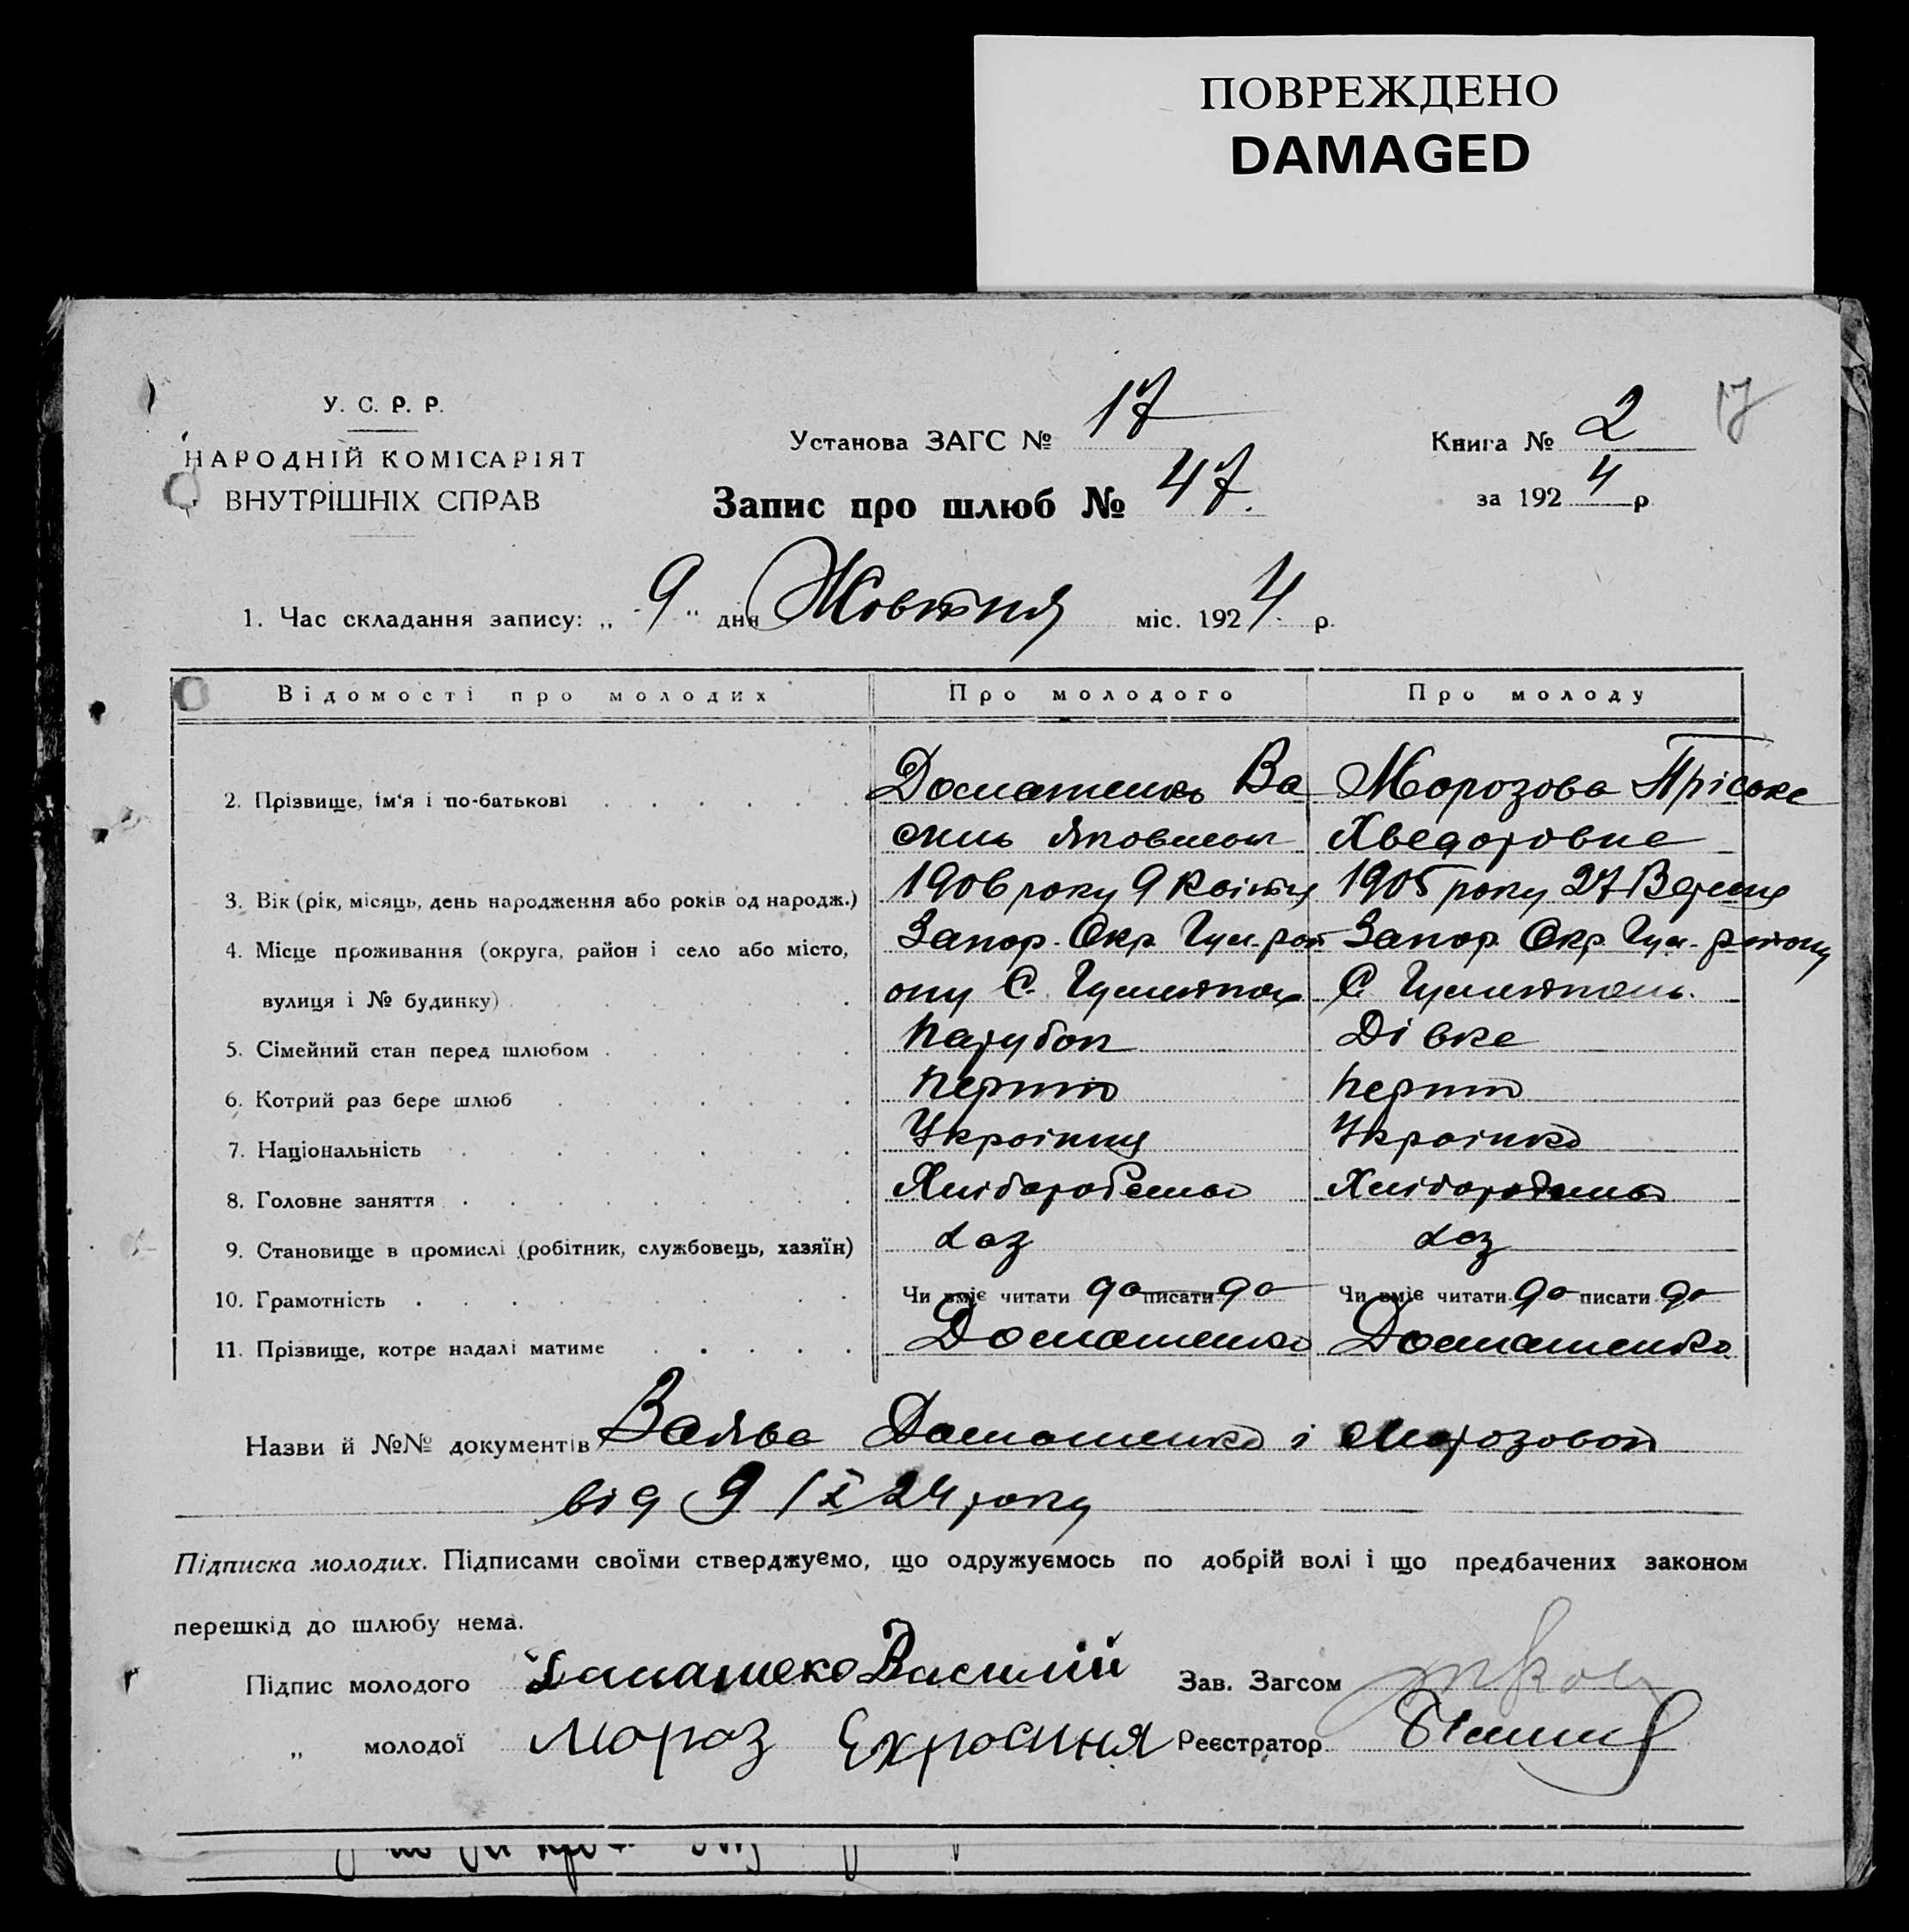 ПОВРЕЖДЕНО
DAMAGED
У. С. Р. Р.
НАРОДНІЙ КОМІСАРІЯТ
ВНУТРІШНІХ СПРАВ
Установа ЗАГС № 17
Книга № 2
17
Запис про шлюб № 47.
за 1924 р
1. Час складання запису: „ 9 “ дня Жовтня міс. 1924 р.
Відомості про молодих Про молодого Про молоду
2. Прізвище, ім'я і по-батькові Домашенко Ва Морозова Пріська
силь Яковлевич Хведоровна
3. Вік (рік, місяць, день народження або років од народж.) 1906 року 9 Квітня 1905 року 27 Вересня
4. Місце проживання (округа, район і село або місто, Запор. Окр. Гул. рай Запор. Окр. Гул. району
вулиця і № будинку) ону С. Гуляйполе С. Гуляйполь.
5. Сімейний стан перед шлюбом Парубок Дівка
6. Котрий раз бере шлюб перший перший
7. Національність Українця Українка
8. Головне заняття Хліборобство Хліборобство
9. Становище в промислі (робітник, службовець, хазяїн) хаз хаз
10. Грамотність Чи вміє читати да писати да Чи вміє читати да писати да
11. Прізвище, котре надалі матиме Домашенко Домашенко
Назви й №№ документів Заява Домашенко і Морозовой
від 9/X 24 року
Підписка молодих. Підписами своїми стверджуємо, що одружуємось по добрій волі і що предбачених законом
перешкід до шлюбу нема.
Підпис молодого Домашеко Василий Зав. Загсом
„ молодої Мороз Ехросиня Реєстратор